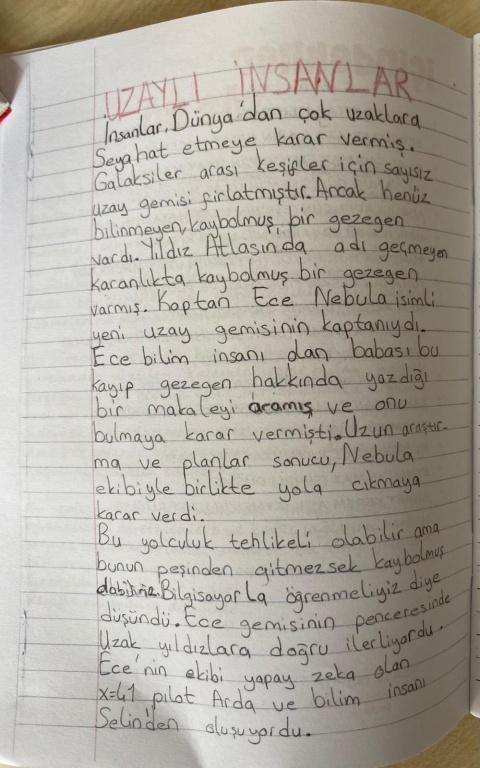 UZAYLI İNSANLAR
İnsanlar, Dünya'dan çok uzaklara
Seyahat etmeye karar vermiş.
Galaksiler arası keşifler için sayısız
uzay gemisi fırlatmıştır. Ancak henüz
bilinmeyen, kaybolmuş, bir gezegen
vardı. Yıldız Atlasında adı geçmeyen
karanlıkta kaybolmuş bir gezegen
varmış. Kaptan Ece Nebula isimli
yeni uzay gemisinin kaptanıydı.
Ece bilim insanı olan babası bu
kayıp gezegen hakkında yazdığı
bir makaleyi aramış ve onu
bulmaya karar vermişti. Uzun araştır-
ma ve planlar sonucu, Nebula
ekibiyle birlikte yola cıkmaya
karar verdi.
Bu yolculuk tehlikeli olabilir ama
bunun peşinden gitmezsek kaybolmuş
Bilgisayarla öğrenmeliyiz diye
düşündü. Ece gemisinin penceresinde
Uzak yıldızlara doğru ilerliyordu.
Ece'nin ekibi yapay zeka olan
x=41 pilot Arda ve bilim insanı
Selin'den oluşuyordu.